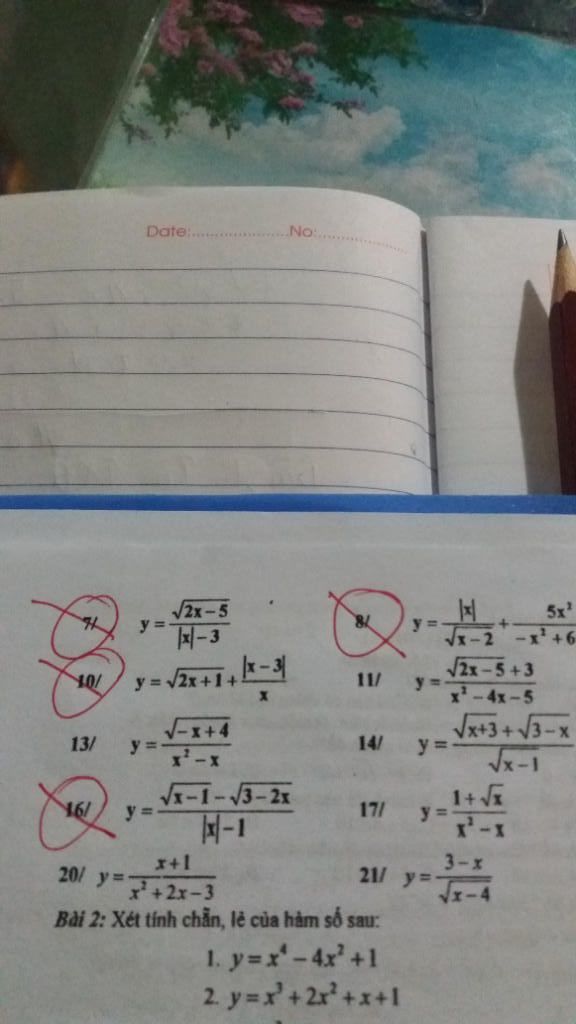 Date:......................No:......................
7/ y = \frac{\sqrt{2x-5}}{|x|-3} 8/ y = \frac{|x|}{\sqrt{x-2}} + \frac{5x^2}{-x^2+6}
10/ y = \sqrt{2x+1} + \frac{|x-3|}{x} 11/ y = \frac{\sqrt{2x-5}+3}{x^2-4x-5}
13/ y = \frac{\sqrt{-x+4}}{x^2-x} 14/ y = \frac{\sqrt{x+3}+\sqrt{3-x}}{\sqrt{x-1}}
16/ y = \frac{\sqrt{x-1}-\sqrt{3-2x}}{|x|-1} 17/ y = \frac{1+\sqrt{x}}{x^2-x}
20/ y = \frac{x+1}{x^2+2x-3} 21/ y = \frac{3-x}{\sqrt{x-4}}
Bài 2: Xét tính chẵn, lẻ của hàm số sau:
1. y = x^4 - 4x^2 + 1
2. y = x^3 + 2x^2 + x + 1